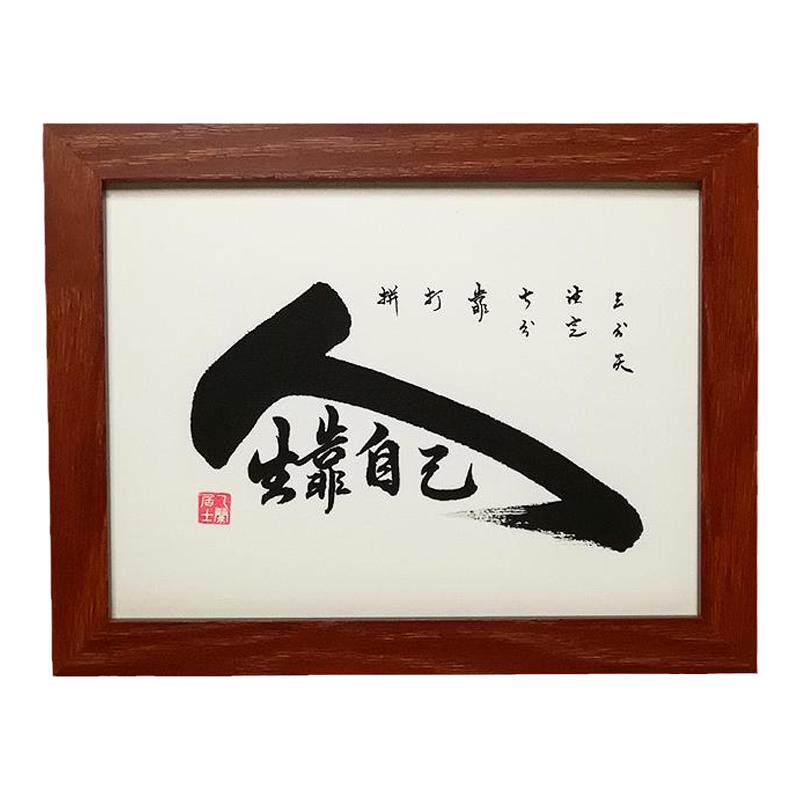 人生靠自己
三分天
注定
七分
靠
打
拼
居士